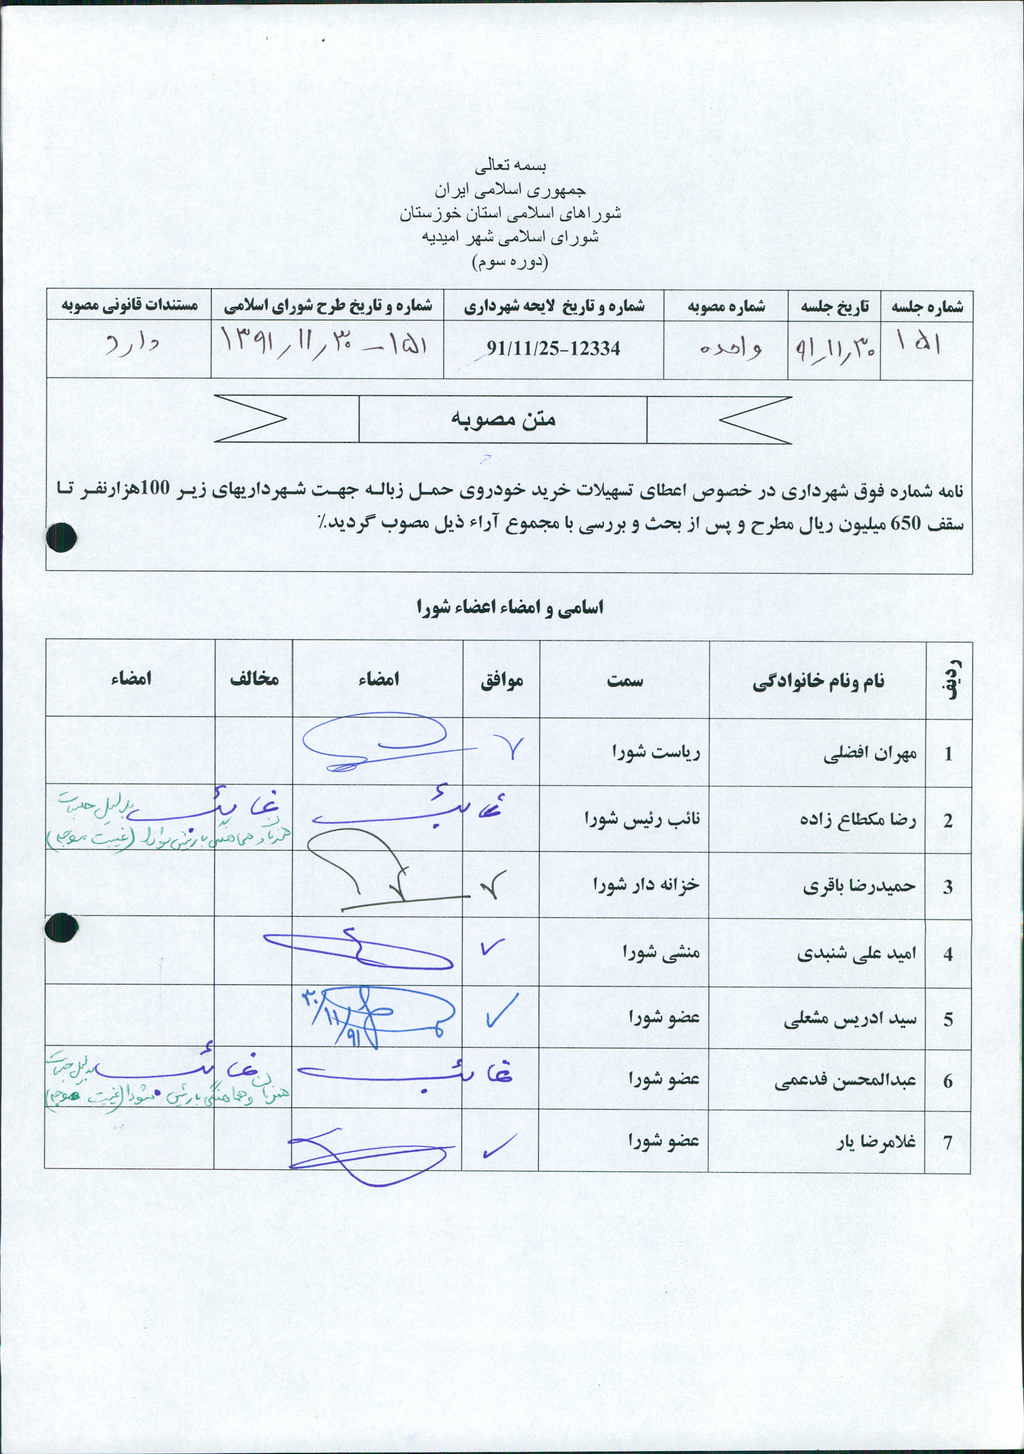 بسمه تعالی
جمهوری اسلامی ایران
شوراهای اسلامی استان خوزستان
شورای اسلامی شهر امیدیه
(دوره سوم)
شماره جلسه تاریخ جلسه شماره مصوبه شماره و تاریخ لایحه شهرداری شماره و تاریخ طرح شورای اسلامی مستندات قانونی مصوبه
۱۵۱ ۹۱/۱۱/۳۰ واحده 91/11/25-12334 ۱۵۱ - ۱۳۹۱/۱۱/۳۰ دارد
متن مصوبه
نامه شماره فوق شهرداری در خصوص اعطای تسهیلات خرید خودروی حمل زباله جهت شهرداریهای زیر 100هزارنفر تا
سقف 650 میلیون ریال مطرح و پس از بحث و بررسی با مجموع آراء ذیل مصوب گردید٪
اسامی و امضاء اعضاء شورا
ردیف نام ونام خانوادگی سمت موافق امضاء مخالف امضاء
1 مهران افضلی ریاست شورا
2 رضا مکطاع زاده نائب رئیس شورا غائب غائب بدلیل جلسات
همزمان و هماهنگی با رئیس شورا (غیبت موجه)
3 حمیدرضا باقری خزانه دار شورا
4 امید علی شنبدی منشی شورا
5 سید ادریس مشعلی عضو شورا ۹۱/۱۱/۳۰
6 عبدالمحسن فدعمی عضو شورا غائب غائب بدلیل جلسات
همزمان و هماهنگی با رئیس شورا (غیبت موجه)
7 غلامرضا یار عضو شورا